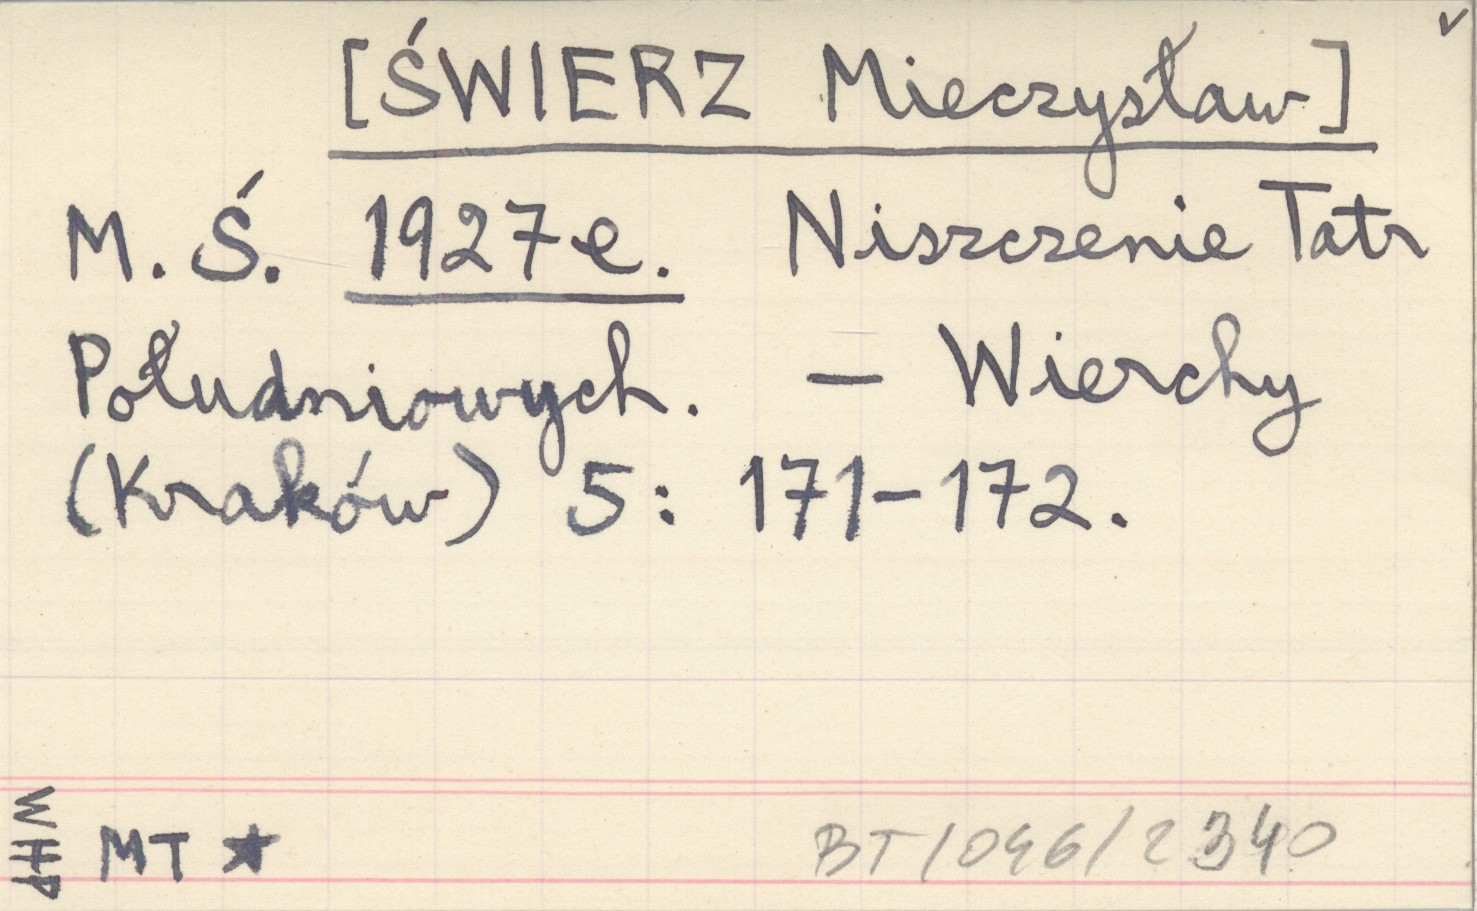 [ŚWIERZ Mieczysław]
M. Ś. 1927e. Niszczenie Tatr
Południowych. – Wierchy
(Kraków) 5: 171–172.
WHP
MT ★
BT/046/2340